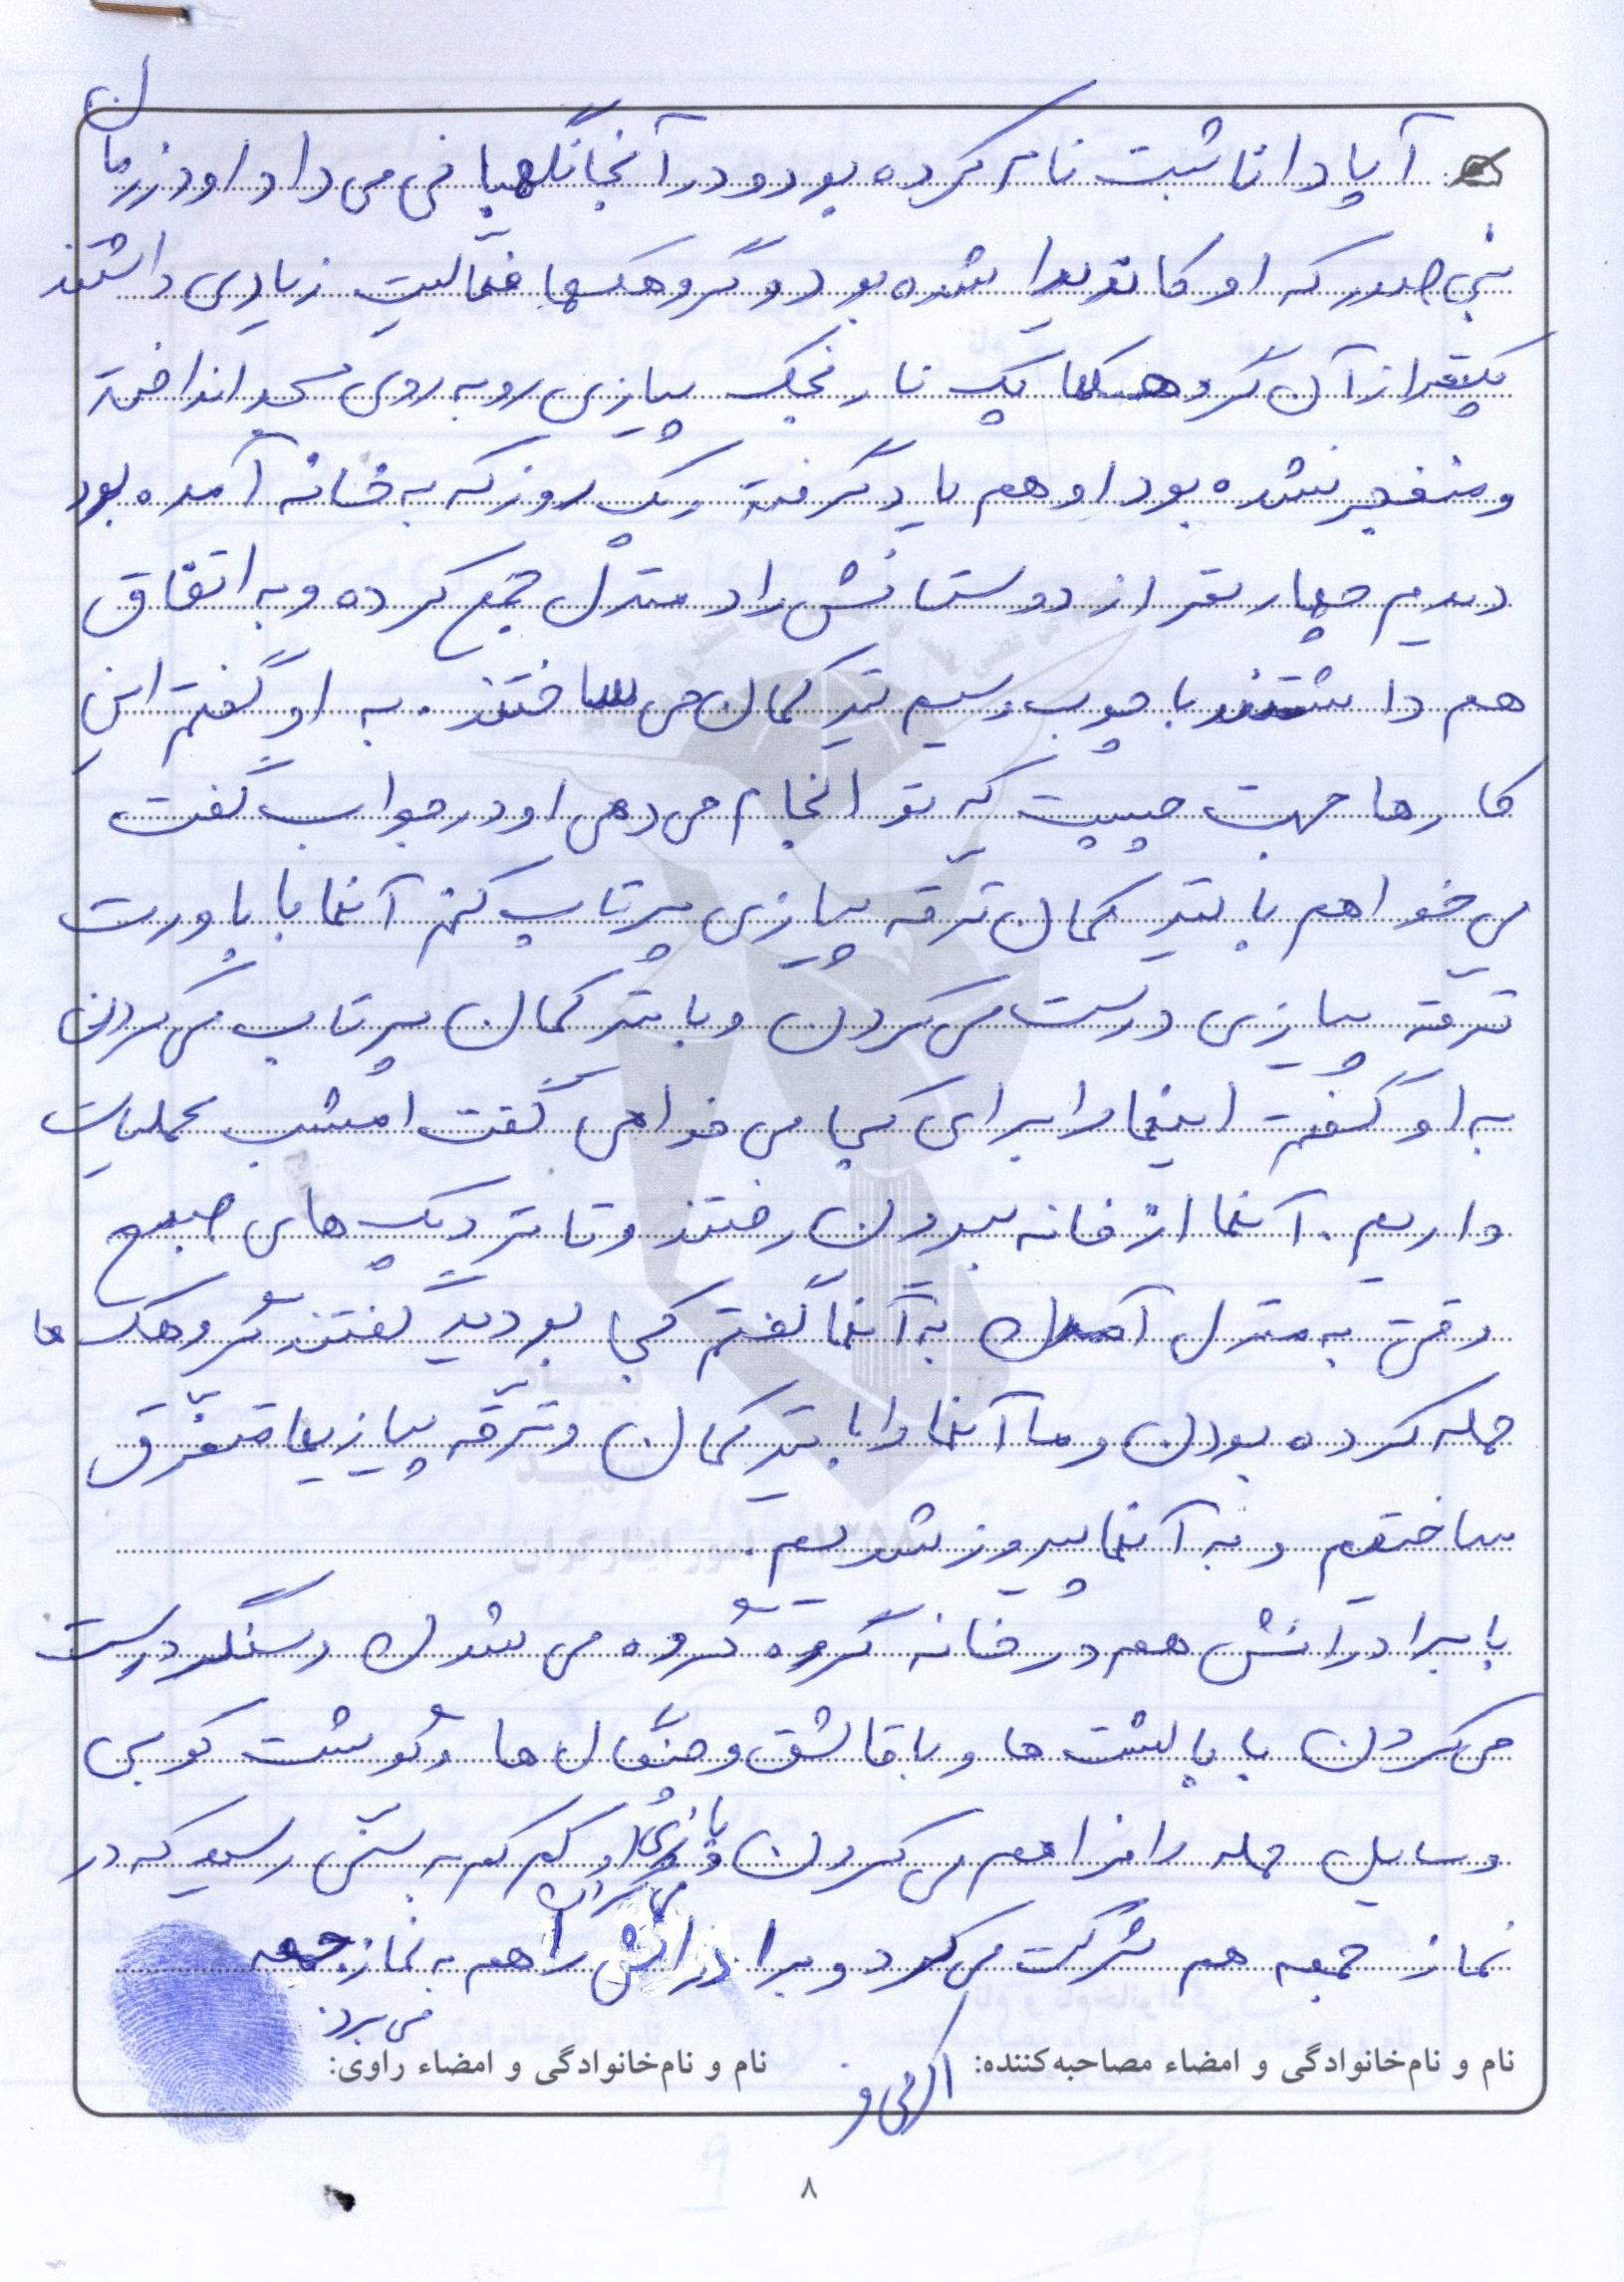 آپادانا ثبت نام کرده بود و در آنجا نگهبانی می داد او در زمان
بنی صدر که او کاندیدا شده بود و گروهکها فعّالیت زیادی داشتند
یکنفر از آن گروهکها یک نارنجک پیازی روبه روی مسجد انداخته
و منفجر نشده بود او هم یاد گرفته یک روز که به خانه آمده بود
دیدم چهار نفر از دوستانش را در منزل جمع کرده و به اتفاق
هم داشتند با چوب و سیم تیرکمان می ساختند. به او گفتم این
کارها جهت چیست که تو انجام می دهی او در جواب گفت
می خواهم با تیرکمان ترقه پیازی پرتاب کنم آنها با باورت
ترقه پیازی درست می کردن و با تیرکمان پرتاب می کردن
به او گفتم اینها را برای کجا می خواهی گفت امشب عملیات
داریم. آنها از خانه بیرون رفتند و تا نزدیک های صبح
وقتی به منزل آمدن به آنها گفتم کجا بودید گفتند گروهک ها
حمله کرده بودن و ما آنها را با تیرکمان و ترقه پیازیها متفرّق
ساختیم و به آنها پیروز شدیم.
با برادرانش هم در خانه گروه گروه می شدن و سنگر درست
می کردن با بالشت ها و با قاشق و چنگال ها و گوشت کوبی
وسایل حمله را فراهم می کردن و بازی می کردن و کم کم به سنّی رسید که در
نماز جمعه هم شرکت می کرد و برادرانش را هم به نماز جمعه
می برد.
نام و نام‌خانوادگی و امضاء مصاحبه‌کننده:
نام و نام‌خانوادگی و امضاء راوی:
۸